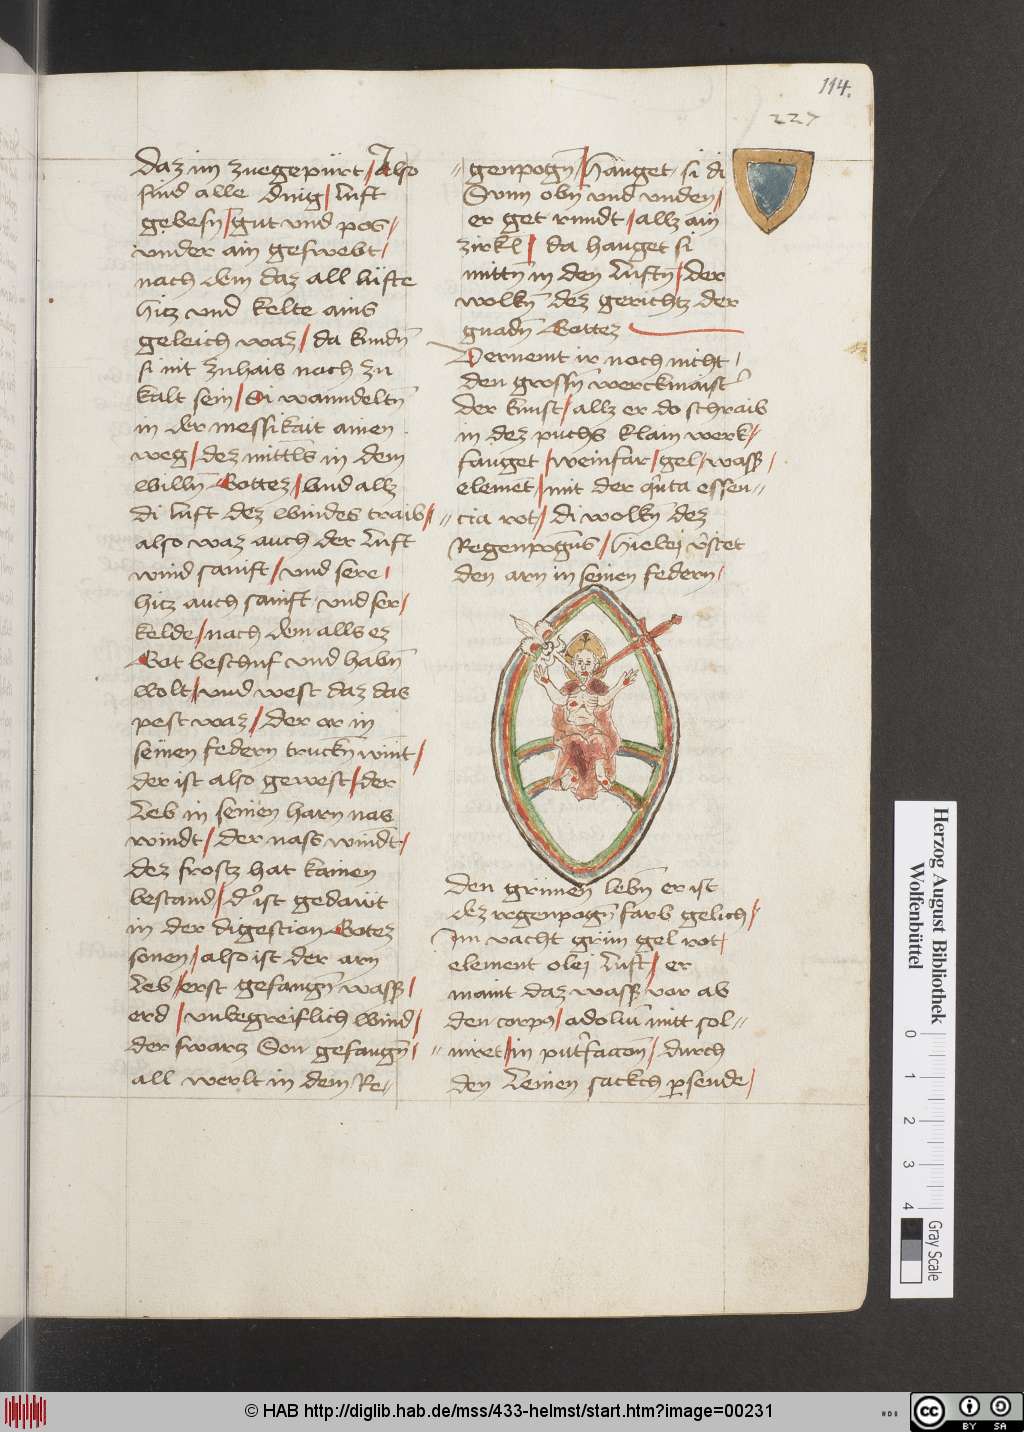 114.
227
daz im zuegepürt / Also
sind alle ding / luft
gebesn / gut vnd pos /
vnder ain geswebt /
nach dem daz all lüfte
hitz vnd kelte ains
geleich waz / da kundn̄
si nit zuhais noch zu
kalt sein / Si wanndeltn̄
in der messikait ainen
weg / dez mittls in dem
willn̄ Gottez / vnd allz
di luft dez windes traib /
also waz auch der luft
wind sanift / vnd sere /
hitz auch sanift vnd ser /
kelde / nach dem alls ez
Got beschuf vnd habn̄
wolt / vnd west daz das
pest waz / der ar in
seinen federn truckn̄ wint /
der ist also gewest / der
Leb in seinen harn nas
windt / der nass windt /
dez frostz hat kainen
bestand / d' ist gedawt
in der digestion Gotez
sonen / also ist der arn
Leb / erst gefangn̄ wass' /
erd / vnbegreiflich wind /
der swartz Son gefangn̄ /
all werlt in dem Re=
genpogn̄ / hanget si di
Sunn obn̄ vnd vnden /
er get rundt / allz ain
zirkl / da hanget si
mittn̄ in den luftn̄ / der
wolkn̄ dez gerichtz der
gnadn̄ Gottez
Vernemt ir noch nicht /
den grossn̄ werckmaist'
der kunst / allz er do schraib
in dez puchs klain werk /
fanget / weinfar / gel / wass' /
elemet / mit der q̄nta essen=
cia rot / di wolkn̄ dez
Regenpogn̄s / hielej v'stet
den arn in seinen federn /
den grünen lebn̄ er ist
dez regenpogn̄ farb gelich /
Im vacht grün gel rot /
element olej luft / er
maint daz wass' vor ab
den corp9 / adoliū mitt sol=
uiret / in put'facion̄ / durch
den Leinen sackch p̱sende /
Herzog August Bibliothek
Wolfenbüttel
0 1 2 3 4
Gray Scale
© HAB http://diglib.hab.de/mss/433-helmst/start.htm?image=00231
HAB
cc BY SA